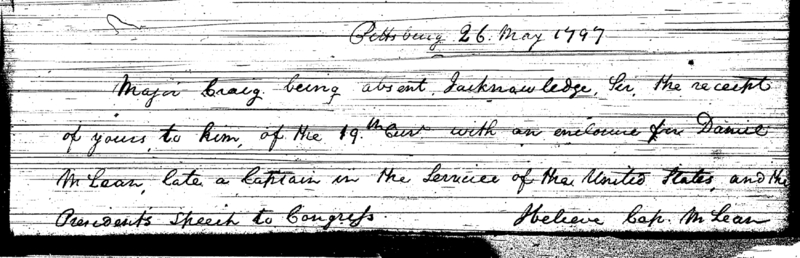 Pittsburg 26 May 1797
Major Craig being absent, I acknowledge, Sir, the receipt
of yours, to him, of the 19th Curt with an enclosure for Daniel
McLean, late a Captain in the Service of the United States, and the
Presidents Speech to Congress. I believe Cap. McLean